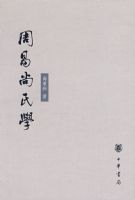 周易尚氏學
尚秉和 撰
中華書局